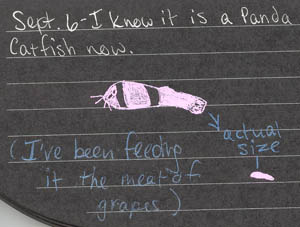 Sept. 6-I know it is a Panda
Catfish now.
actual
size
(I've been feeding
it the meat of
grapes)